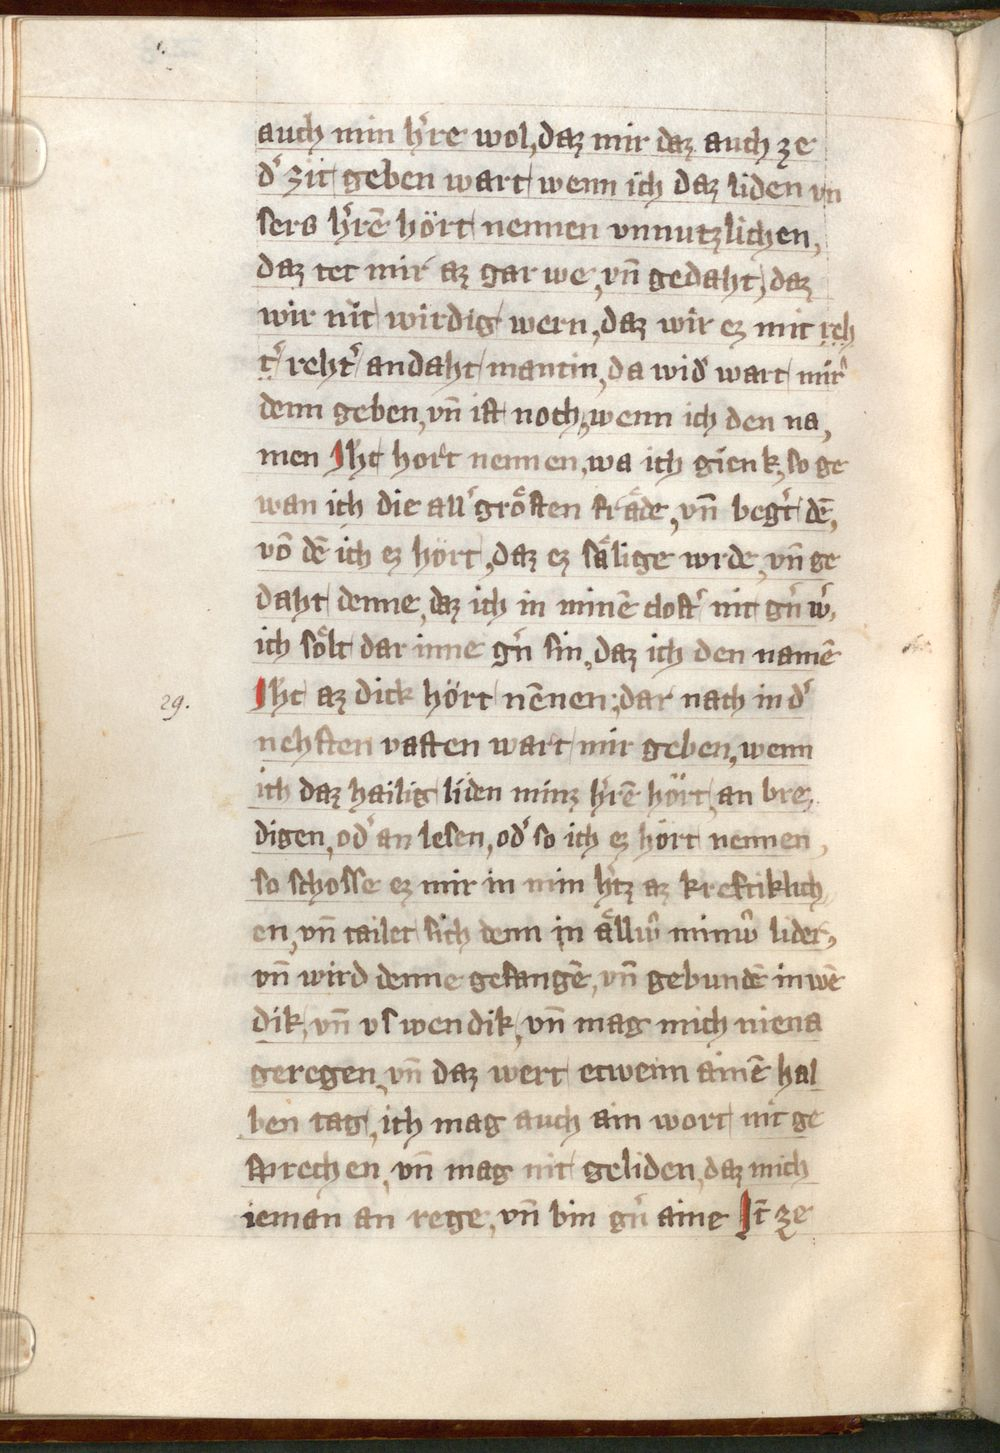 auch min hʼre wol, daz mir daz auch ze
dʼ zit geben wart wenn ich daz liden vn
sers hʼrē hört nennen vnnutzlichen,
daz tet mir az gar we, vn̄ gedaht, daz
wir nit wirdig wern, daz wir ez mit reh
tʼ rehtʼ andaht mantin, da widʼ wart mir
denn geben, vn̄ ist noch, wenn ich den na,
men Jhc hort nennen, wa ich gienk, so ge
wan ich die allʼ grösten fräde, vn̄ begʼt dē,
vō dē ich ez hört, daz ez sälige wrde, vn̄ ge
daht denne, daz ich in minē clostʼ nit gʼn wʼ,
ich sölt dar inne gʼn sin, daz ich den namē
Jhc az dick hört nēnen, dar nach in dʼ
29.
nehsten vasten wart mir geben, wenn
ich daz hailig liden minz hʼrē hört, an bre,
digen, odʼ an lesen, odʼ so ich ez hört nennen,
so schosse ez mir in min hʼtz az kreftiklich
en, vn̄ tailet sich denn in ällwʼ minwʼ lider,
vn̄ wird denne gefangē, vn̄ gebundē in wē
dik, vn̄ vs wendik, vn̄ mag mich niena
geregen, vn̄ daz wert etwenn ainē hal
ben tag, ich mag auch ain wort nit ge
sprechen, vn̄ mag nit geliden, daz mich
ieman an rege, vn̄ bin gʼn aine Jt̄ ze